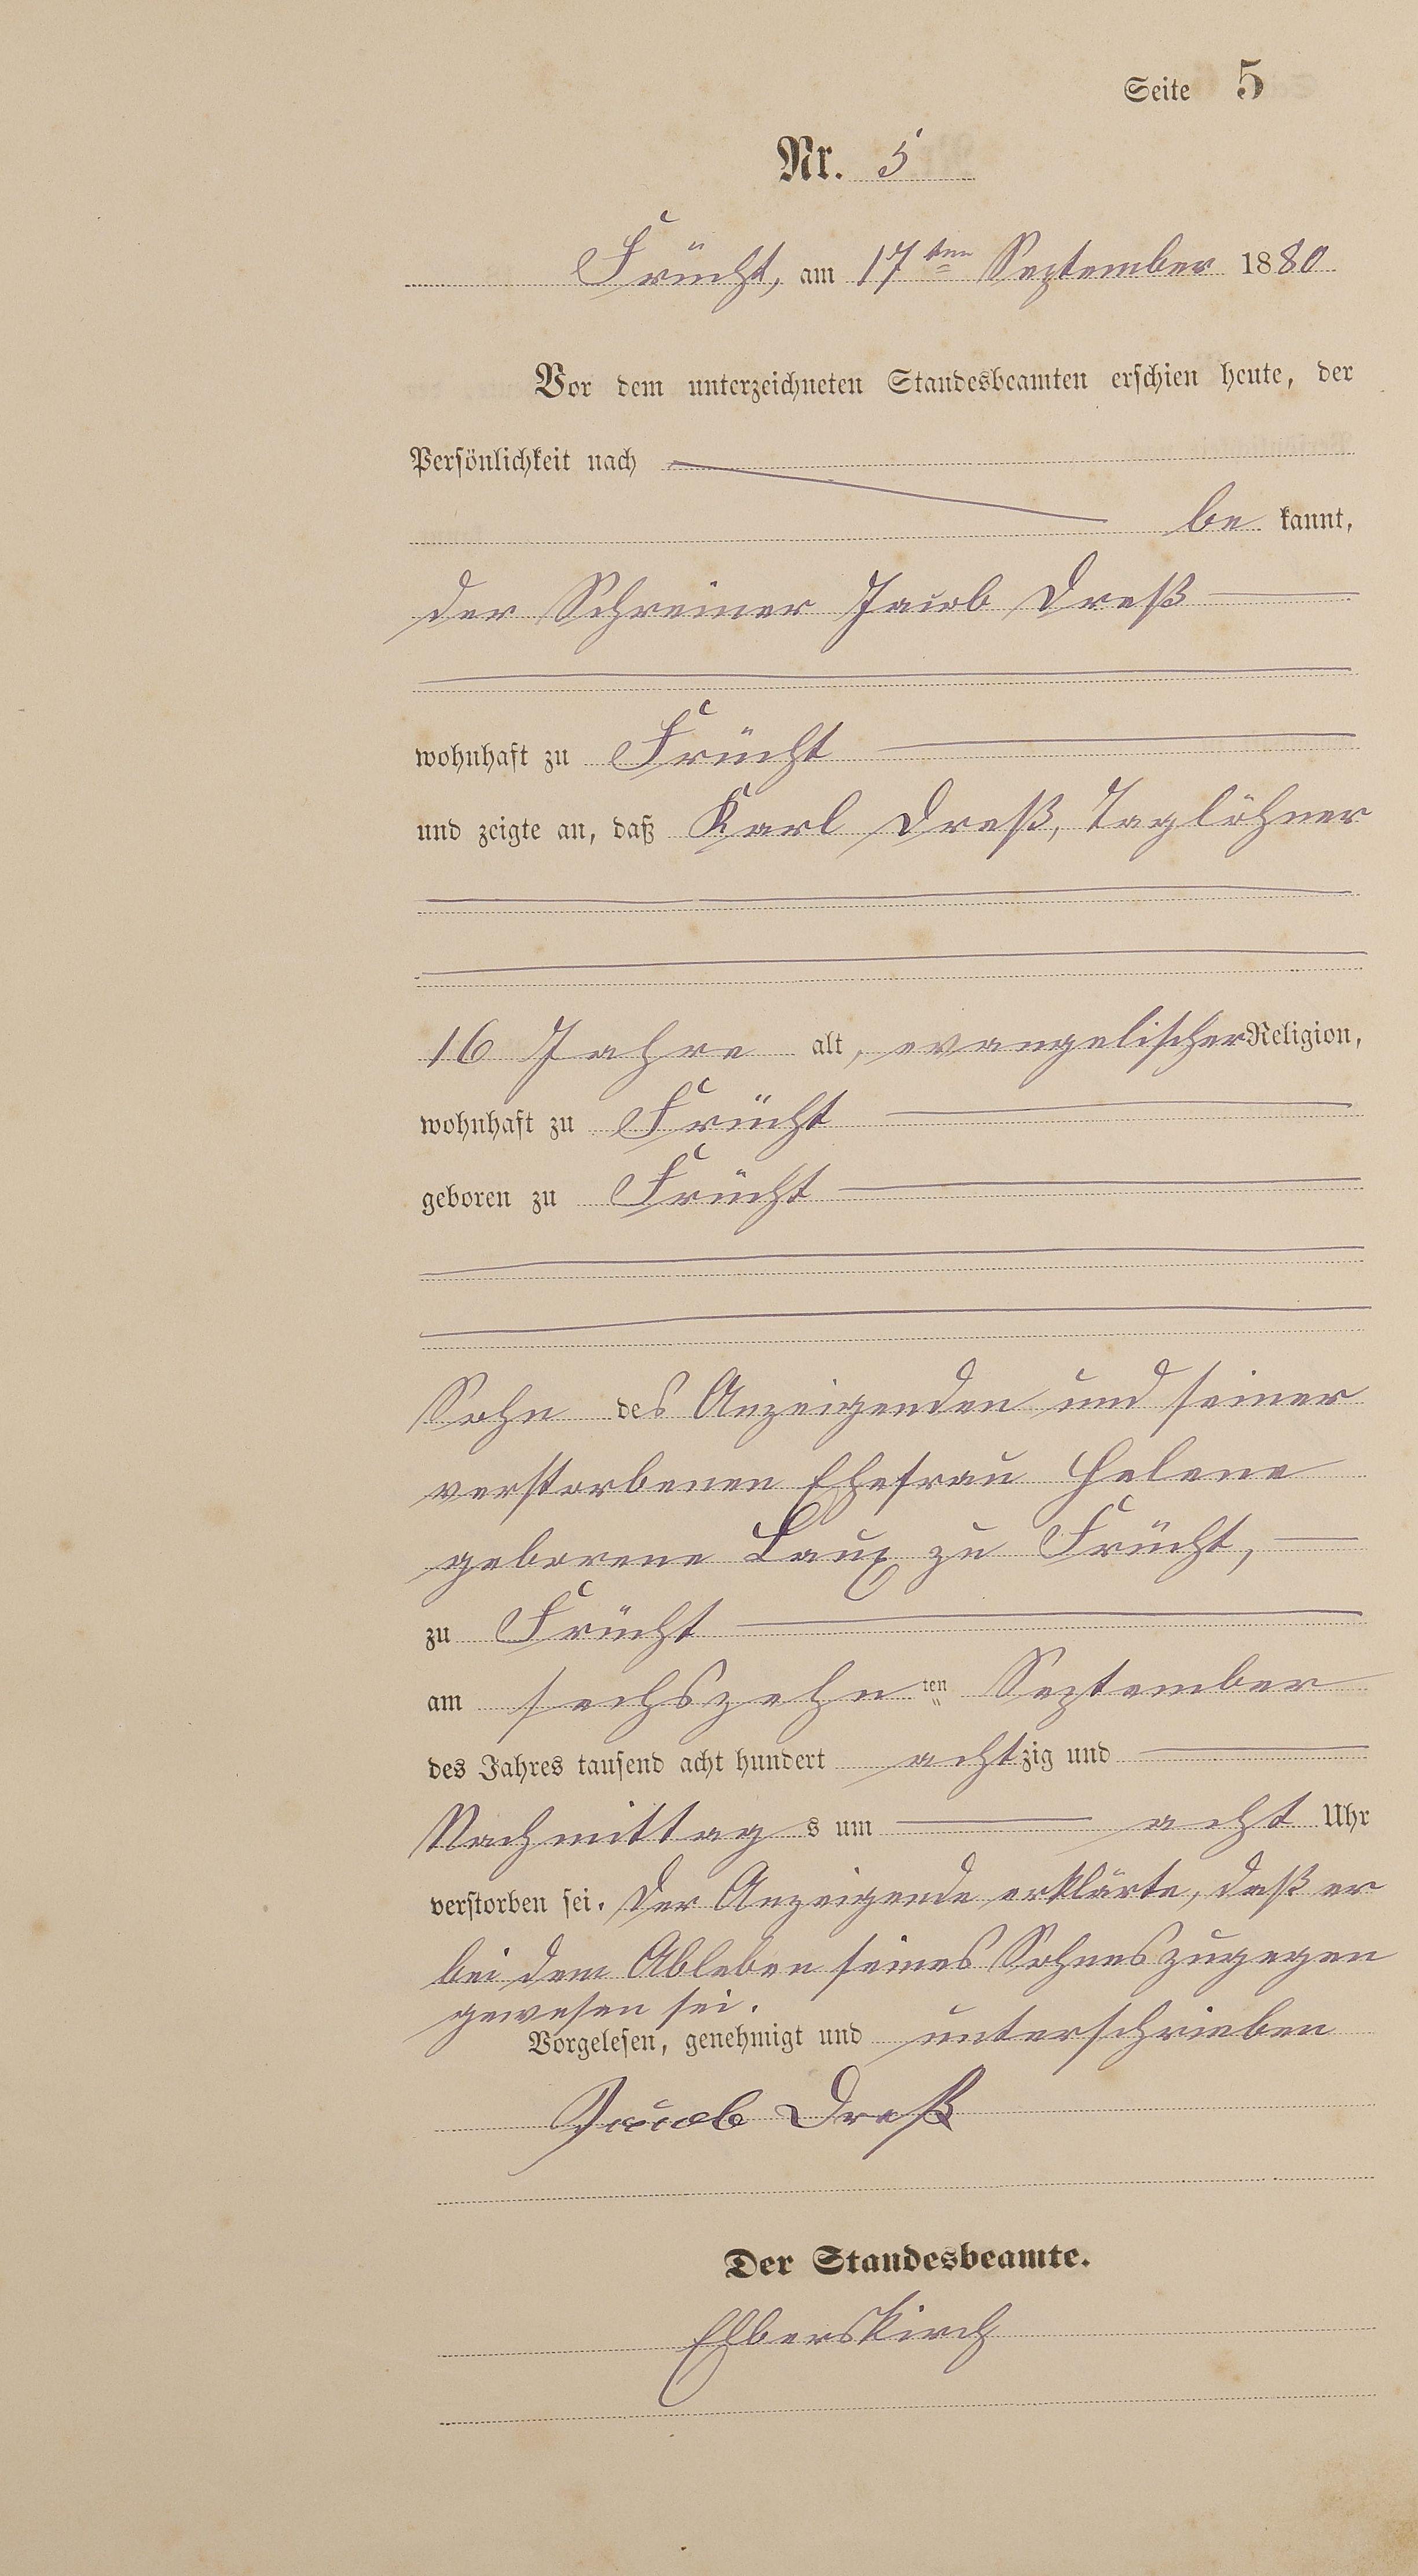 Seite 5
Nr. 5
Frücht, am 17ten September 1880
Vor dem unterzeichneten Standesbeamten erschien heute, der
Persönlichkeit nach
be kannt,
der Schreiner Jacob Dreß
wohnhaft zu Frücht
und zeigte an, daß Karl Dreß, Taglöhner
16 Jahre alt, evangelischer Religion,
wohnhaft zu Frücht
geboren zu Frücht
Sohn des Anzeigenden und seiner
verstorbenen Ehefrau Helene
geborene Laux zu Frücht,
zu Frücht
am sechszehn ten September
des Jahres tausend acht hundert achtzig und
Nachmittag s um acht Uhr
verstorben sei. Der Anzeigende erklärte, daß er
bei dem Ableben seines Sohnes zugegen
gewesen sei.
Vorgelesen, genehmigt und unterschrieben
Jacob Dreß
Der Standesbeamte.
Elberskirch